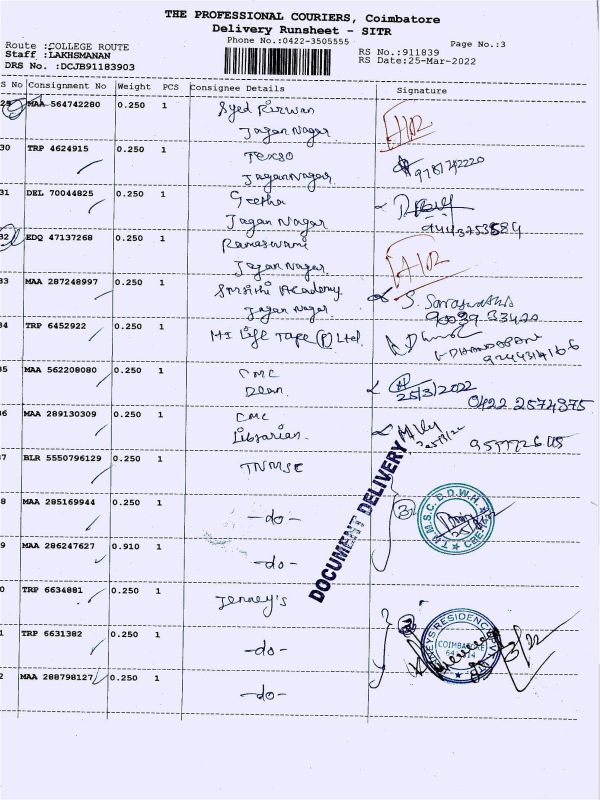 THE PROFESSIONAL COURIERS, Coimbatore
Delivery Runsheet - SITR
Phone No.:0422-3505555
Page No.:3
Route :COLLEGE ROUTE
Staff :LAKHSMANAN
DRS No. :DCJB91183903
RS No.:911839
RS Date:25-Mar-2022
S No Consignment No Weight PCS Consignee Details Signature
29 MAA 564742280 0.250 1 Syed Rizwan
Jagan Nagar
30 TRP 4624915 0.250 1 Texso
Jagan Nagar 9787742220
31 DEL 70044825 0.250 1 Geetha
Jagan Nagar
32 EDQ 47137268 0.250 1 Ramaswami
Jagan Nagar
33 MAA 287248997 0.250 1 Academy
Jagan Nagar
34 TRP 6452922 0.250 1 MI Life Tape (P) Ltd.
35 MAA 562208080 0.250 1 CMC
Dean. 25/3/2022
0422 2574375
36 MAA 289130309 0.250 1 CMC
Librarian.
37 BLR 5550796129 0.250 1 TNMSC
8 MAA 285169944 0.250 1 -do-
9 MAA 286247627 0.910 1 -do-
DOCUMENT DELIVERY
T.N.M.S.C.B.D.W.H
0 TRP 6634881 0.250 1 Jenney's
1 TRP 6631382 0.250 1 -do-
JENNEYS RESIDENCY
COIMBATORE
2 MAA 288798127 0.250 1 -do-